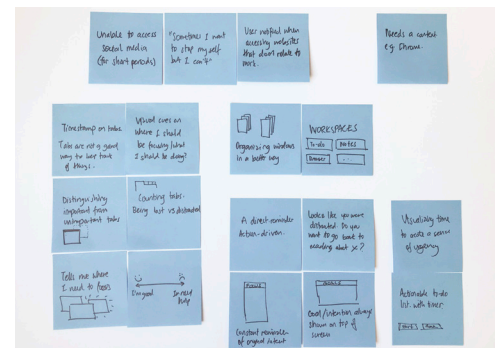 Unable to access
social media
(for short periods)
"Sometimes I want
to stop myself
but I can't"
User notified when
accessing websites
that don't relate to
work.
Needs a context
e.g. Chrome.
Timestamp on tabs
Tabs are not a good
way to keep track
of things.
Visual cues on
where I should
be focusing/what
I should be doing?
Organizing windows
in a better way
WORKSPACES
To-do
Notes
Browser
Distinguishing
important from
unimportant tabs
Counting tabs.
Being lost vs. distracted
A direct reminder
Action-driven.
Looks like you were
distracted. Do you
want to go back to
reading about x?
Visualising time
to create a sense
of urgency
Tells me where
I need to focus
I'm good
In need
help
Constant reminder
of original intent
Goal/intention always
shown on top of
screen
Actionable to-do
list with timer